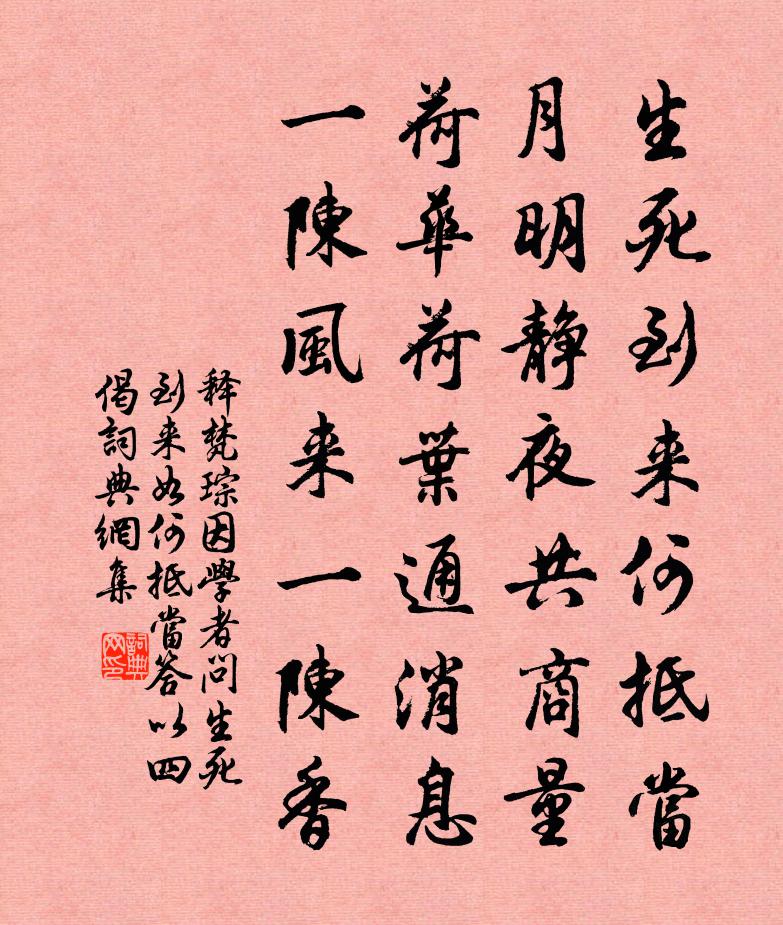 生死到来何抵當
月明静夜共商量
荷華荷葉通消息
一陳風来一陳香
释梵琮因學者問生死
到来如何抵當答以四
偈詞典網集
詞典
网印